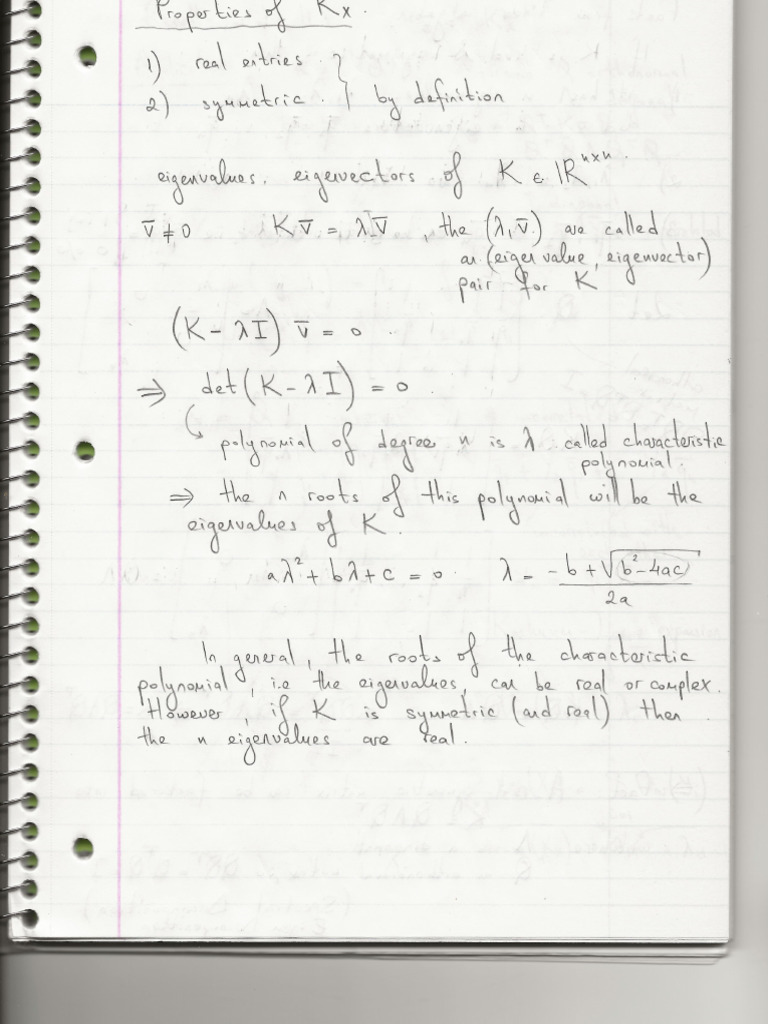 Properties of Kx.
1) real entries. }
2) symmetric. } by definition
eigenvalues, eigenvectors of K ∈ ℝⁿˣⁿ.
v̄ ≠ 0 K v̄ = λ v̄ , the (λ, v̄) are called
an (eigen value, eigenvector)
pair for K
(K - λ I) v̄ = 0 .
⇒ det (K - λ I) = 0
↳ polynomial of degree n is λ called characteristic
polynomial.
⇒ the n roots of this polynomial will be the
eigenvalues of K.
aλ² + bλ + c = 0 λ = (-b + √(b² - 4ac)) / 2a
In general, the roots of the characteristic
polynomial, i.e the eigenvalues, can be real or complex.
However, if K is symmetric (and real) then
the n eigenvalues are real.